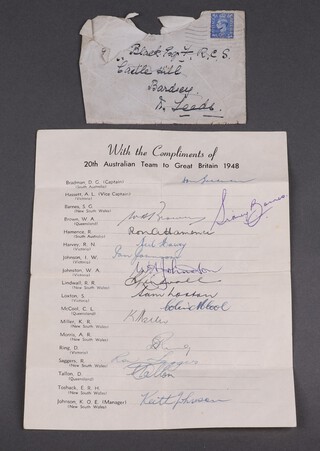 Black
R.C.S.
Castle Hill
Bardsey
Nr Leeds.
With the Compliments of
20th Australian Team to Great Britain 1948
Bradman, D. G. (Captain)
(South Australia)
Hassett, A. L. (Vice Captain)
(Victoria)
Barnes, S. G.
(New South Wales)
Sidney Barnes
Brown, W. A.
(Queensland)
Hamence, R.
(South Australia)
Ron A Hamence
Harvey, R. N.
(Victoria)
Neil Harvey
Johnson, I. W.
(Victoria)
Ian Johnson
Johnston, W. A.
(Victoria)
W A Johnston
Lindwall, R. R.
(New South Wales)
Loxton, S.
(Victoria)
Sam Loxton
McCool, C. L.
(Queensland)
Colin McCool
Miller, K. R.
(New South Wales)
K Miller
Morris, A. R.
(New South Wales)
Ring, D.
(Victoria)
D Ring
Saggers, R.
(New South Wales)
Ron Saggers
Tallon, D.
(Queensland)
D Tallon
Toshack, E. R. H.
(New South Wales)
Johnson, K. O. E. (Manager)
(New South Wales)
Keith Johnson